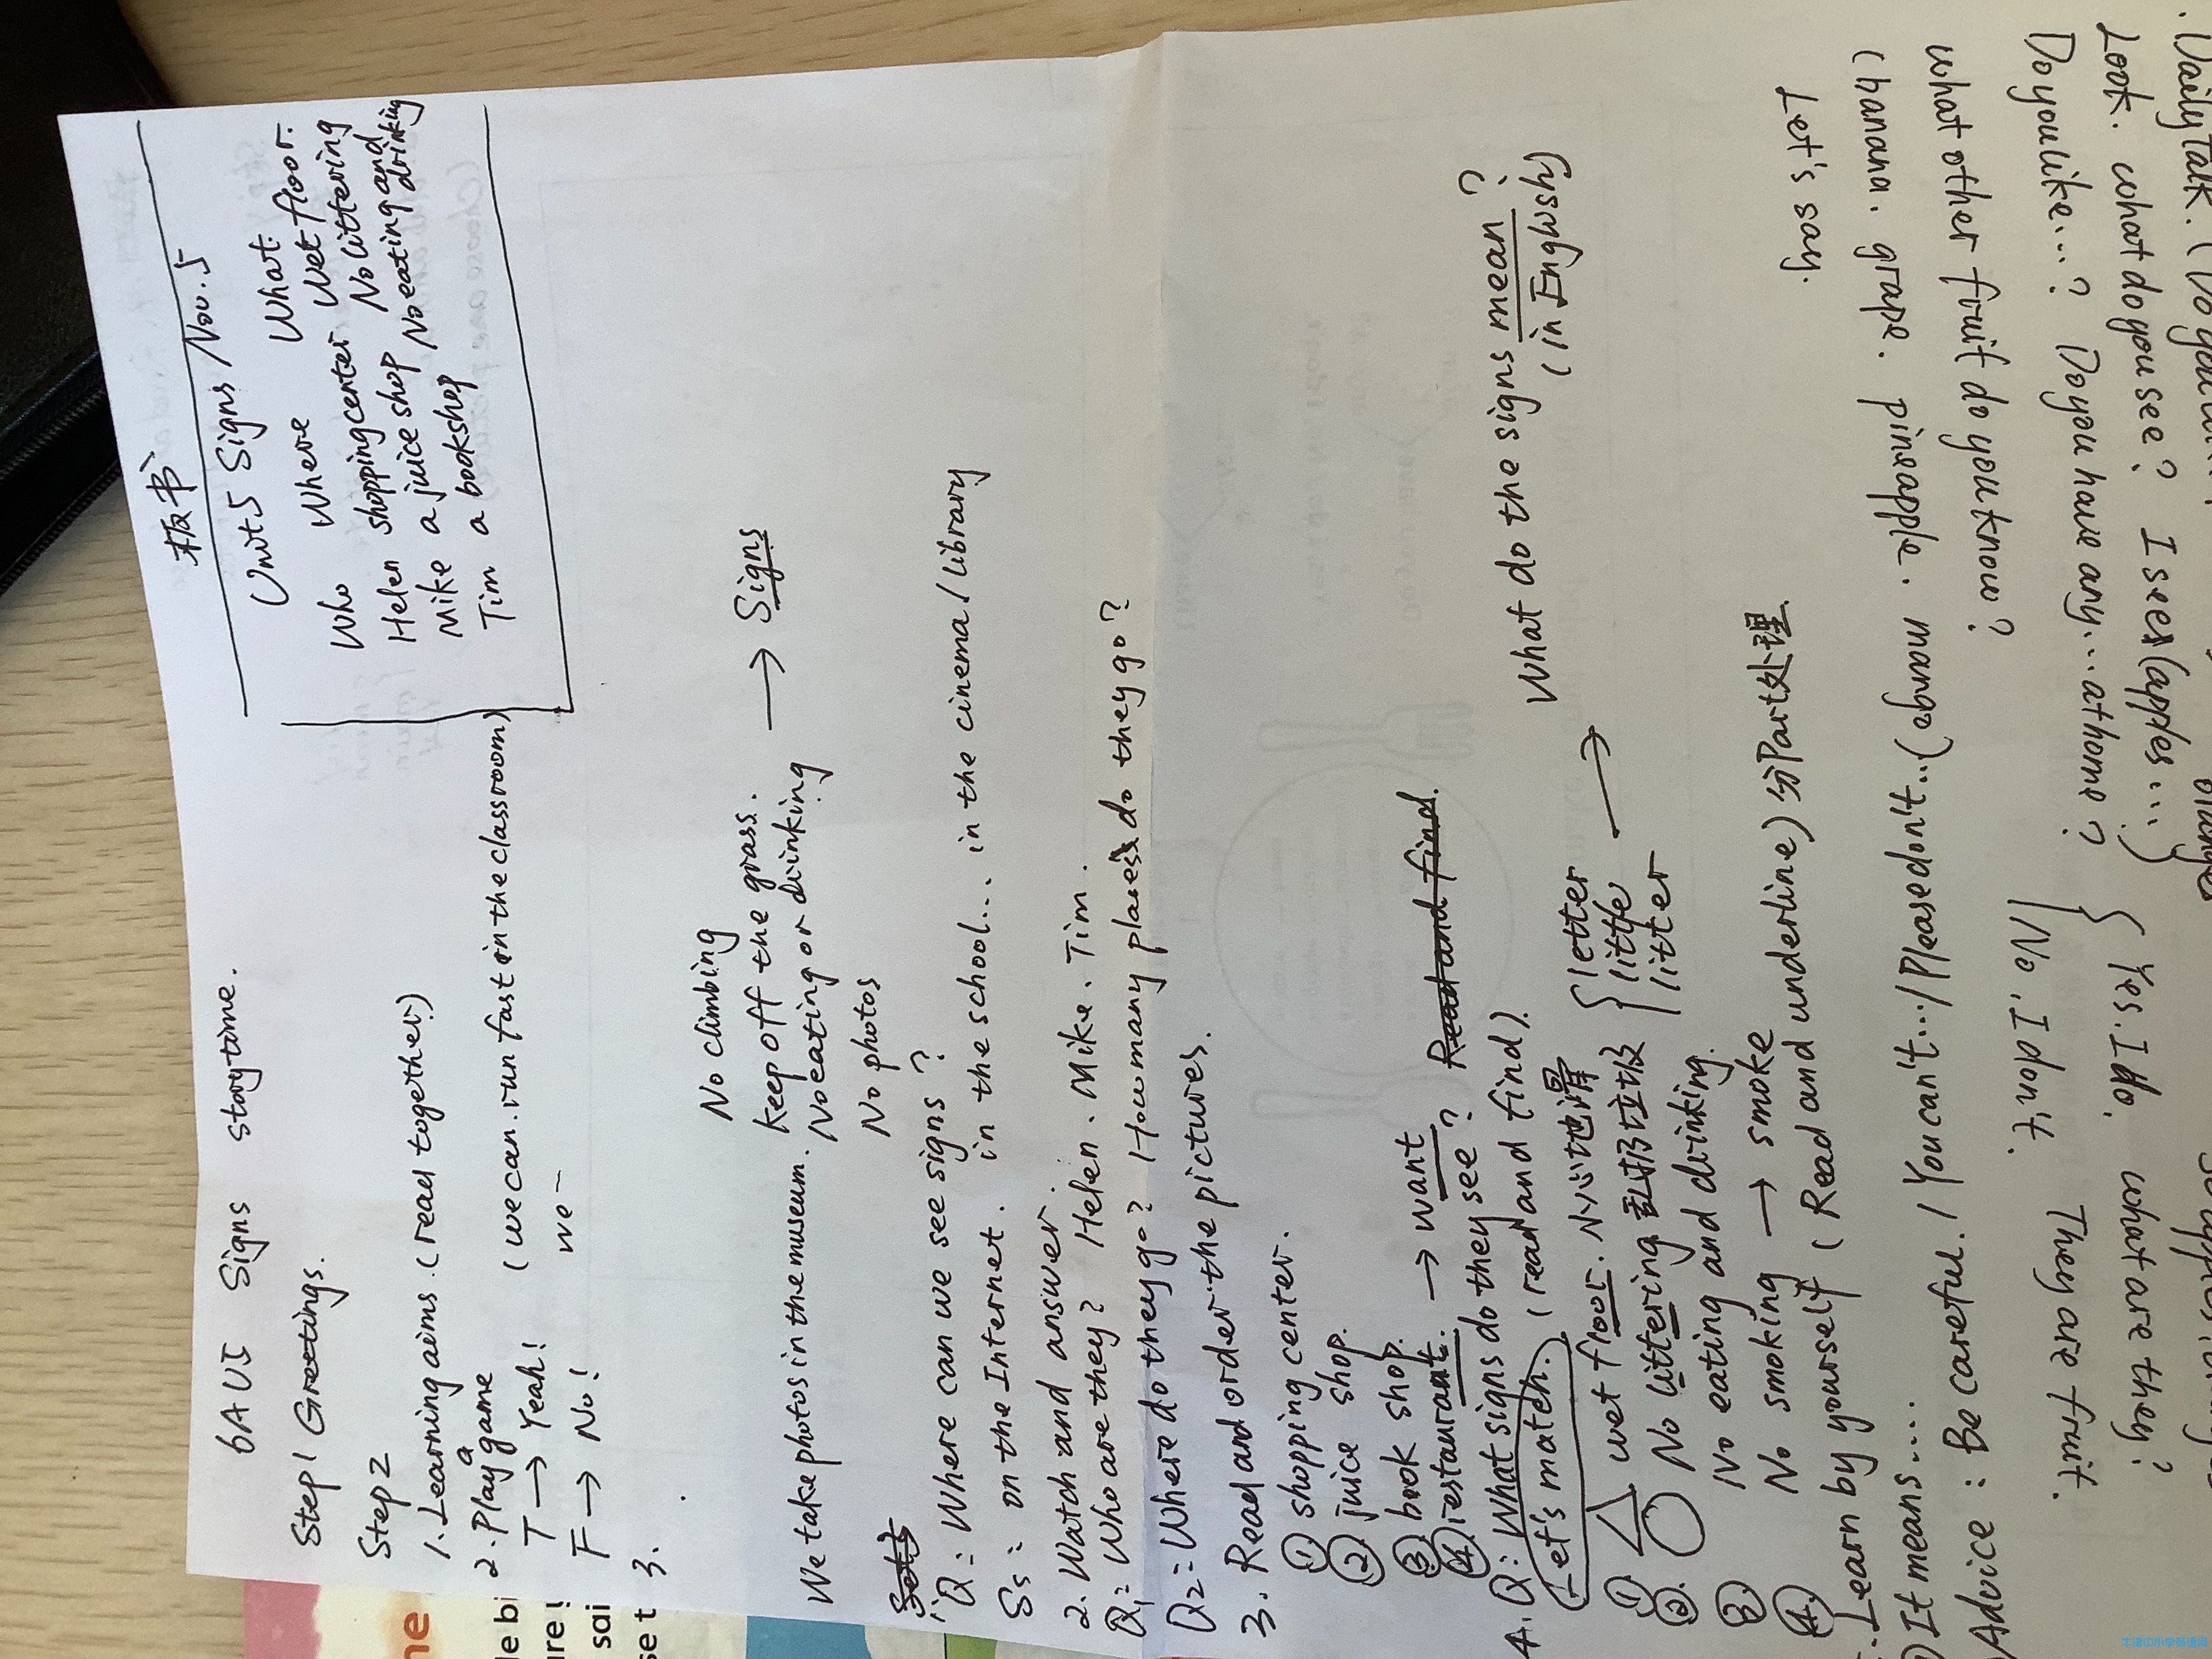 板书
Unit 5 Signs / Nov. 5
Who Where What
Helen shopping center Wet floor.
Mike a juice shop No littering
Tim a bookshop No eating and drinking
6A U5 Signs storytime.
Step 1 Greetings.
Step 2
1. Learning aims. (read together)
2. Play a game
T → Yeah! (we can. run fast in the classroom)
F → No! we
3.
No climbing
keep off the grass.
We take photos in the museum. No eating or drinking → Signs
No photos
Q: Where can we see signs?
Ss: on the Internet. in the school... in the cinema / library
2. Watch and answer.
Q1: Who are they? Helen. Mike. Tim.
Q2: Where do they go? How many places do they go?
3. Read and order the pictures.
① shopping center.
② juice shop.
③ book shop.
④ restaurant. → want Read and find.
4. Q: What signs do they see? (read and find).
Let's match.
① wet floor. 小心地滑 letter
② No littering 乱扔垃圾 little
litter
→ What do the signs mean?
(in English)
③ No eating and drinking.
④ No smoking → smoke
Learn by yourself (Read and underline) 分Part处理.
It means....
Advice: Be careful. / You can't... / Please don't...
Daily Talk.
Look. what do you see? I see (apples...)
Do you like...? Do you have any... at home?
Yes. I do.
No. I don't.
what are they?
They are fruit.
what other fruit do you know?
(banana. grape. pineapple. mango)
Let's say.
se t
sai
ure!
le bi
ne
牛津中小学英语网